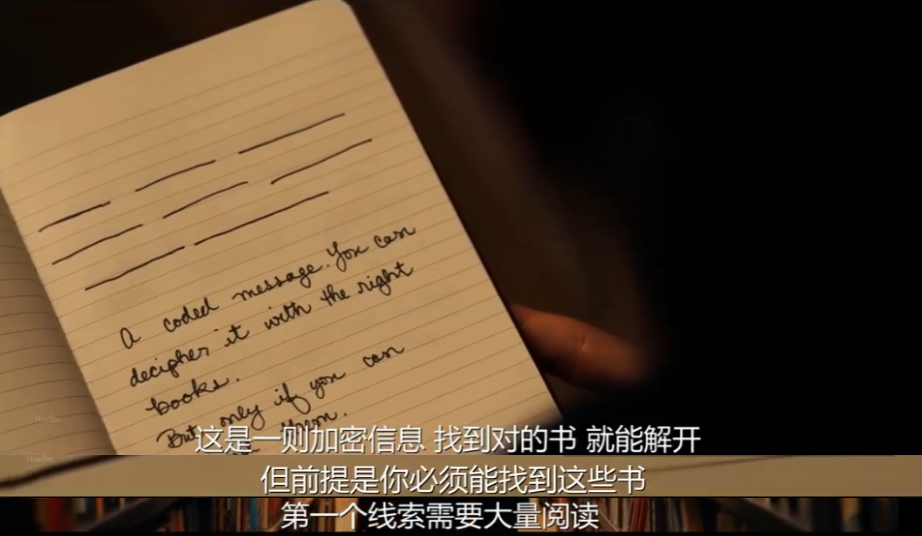 A coded message. You can
decipher it with the right
books.
But only if you can
them.
这是一则加密信息 找到对的书 就能解开
但前提是你必须能找到这些书
第一个线索需要大量阅读